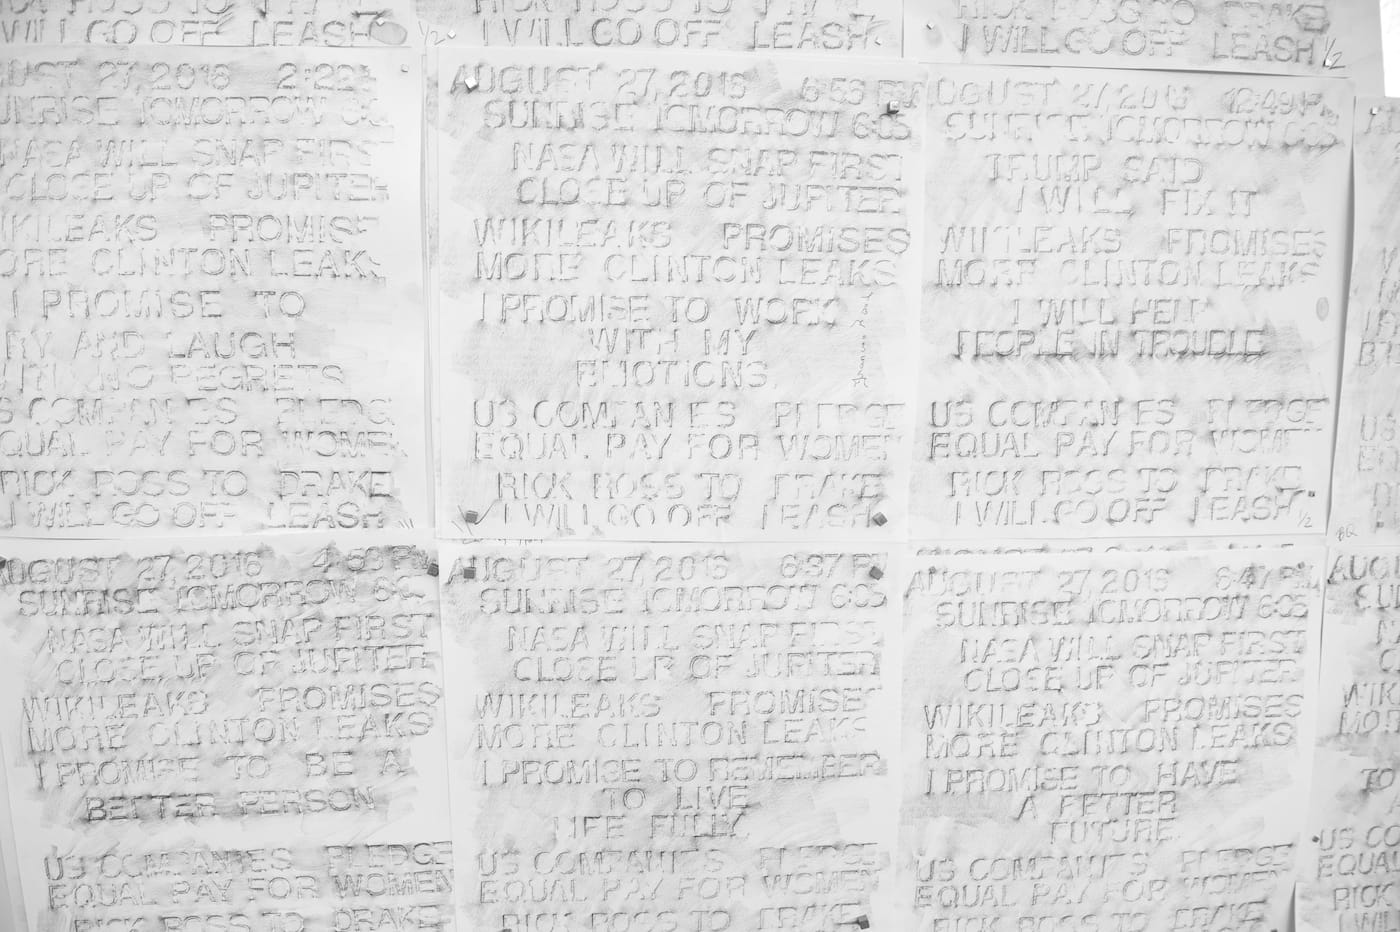 WILL GO OFF LEASH
1/2
I WILL GO OFF LEASH
RICK ROSS TO DRAKE
I WILL GO OFF LEASH 1/2
UST 27, 2016 2:22
UNRISE TOMORROW 6:0
NASA WILL SNAP FIRST
CLOSE UP OF JUPITER
WIKILEAKS PROMISE
ORE CLINTON LEAKS
I PROMISE TO
RY AND LAUGH
NO REGRETS
S COMPANIES PLEDG
QUAL PAY FOR WOMEN
RICK ROSS TO DRAKE
I WILL GO OFF LEASH
AUGUST 27, 2016 6:53 PM
SUNRISE TOMORROW 6:05
NASA WILL SNAP FIRST
CLOSE UP OF JUPITER
WIKILEAKS PROMISES
MORE CLINTON LEAKS
I PROMISE TO WORK
WITH MY
EMOTIONS
US COMPANIES PLEDGE
EQUAL PAY FOR WOMEN
RICK ROSS TO DRAKE
I WILL GO OFF LEASH
UGUST 27, 2016 12:49 P
SUNRISE TOMORROW 6:05
TRUMP SAID
I WILL FIX IT
WIKILEAKS PROMISES
MORE CLINTON LEAKS
I WILL HELP
PEOPLE IN TROUBLE
US COMPANIES PLEDGE
EQUAL PAY FOR WOMEN
RICK ROSS TO DRAKE
I WILL GO OFF LEASH 1/2
US
UGUST 27, 2016 4:53 PM
SUNRISE TOMORROW 6:0
NASA WILL SNAP FIRST
CLOSE UP OF JUPITER
WIKILEAKS PROMISES
MORE CLINTON LEAKS
I PROMISE TO BE A
BETTER PERSON
US COMPANIES PLEDGE
EQUAL PAY FOR WOMEN
RICK ROSS TO DRAKE
AUGUST 27, 2016 6:37 P
SUNRISE TOMORROW 6:05
NASA WILL SNAP FIRST
CLOSE UP OF JUPITER
WIKILEAKS PROMISES
MORE CLINTON LEAKS
I PROMISE TO REMEMBER
TO LIVE
LIFE FULLY
US COMPANIES PLEDGE
EQUAL PAY FOR WOMEN
RICK ROSS TO DRAKE
AUGUST 27, 2016 6:47 PM
SUNRISE TOMORROW 6:05
NASA WILL SNAP FIRST
CLOSE UP OF JUPITER
WIKILEAKS PROMISES
MORE CLINTON LEAKS
I PROMISE TO HAVE
A BETTER
FUTURE
US COMPANIES PLEDGE
EQUAL PAY FOR WOMEN
RICK ROSS TO DRAKE
AUGU
SU
WIKI
MOR
TO
US CO
EQUAL
RICK
I WIL